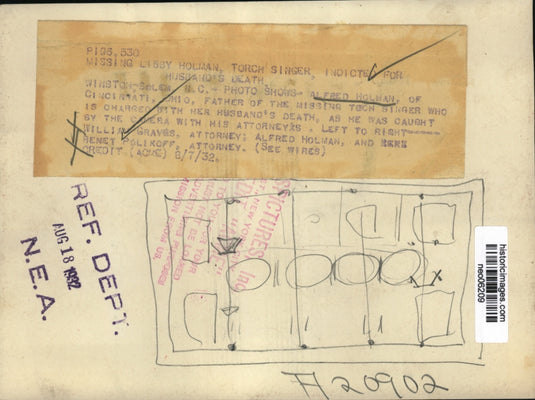 PIGS,530
MISSING LIBBY HOLMAN, TORCH SINGER, INDICTED FOR
HUSBAND'S DEATH.
WINSTON-SALEM N.C.- PHOTO SHOWS- ALFRED HOLMAN, OF
CINCINNATI, OHIO, FATHER OF THE MISSING TORCH SINGER WHO
IS CHARGED WITH HER HUSBAND'S DEATH, AS HE WAS CAUGHT
BY THE CAMERA WITH HIS ATTORNEYS . LEFT TO RIGHT
WILLIAM GRAVES, ATTORNEY; ALFRED HOLMAN, AND
BENET POLIKOFF, ATTORNEY. (SEE WIRES)
CREDIT (ACME) 8/7/32.
REF. DEPT.
AUG 18 1932
N.E.A.
PICTURES, Inc
NEW YORK
historicimages.com
neo06209
X
A20902